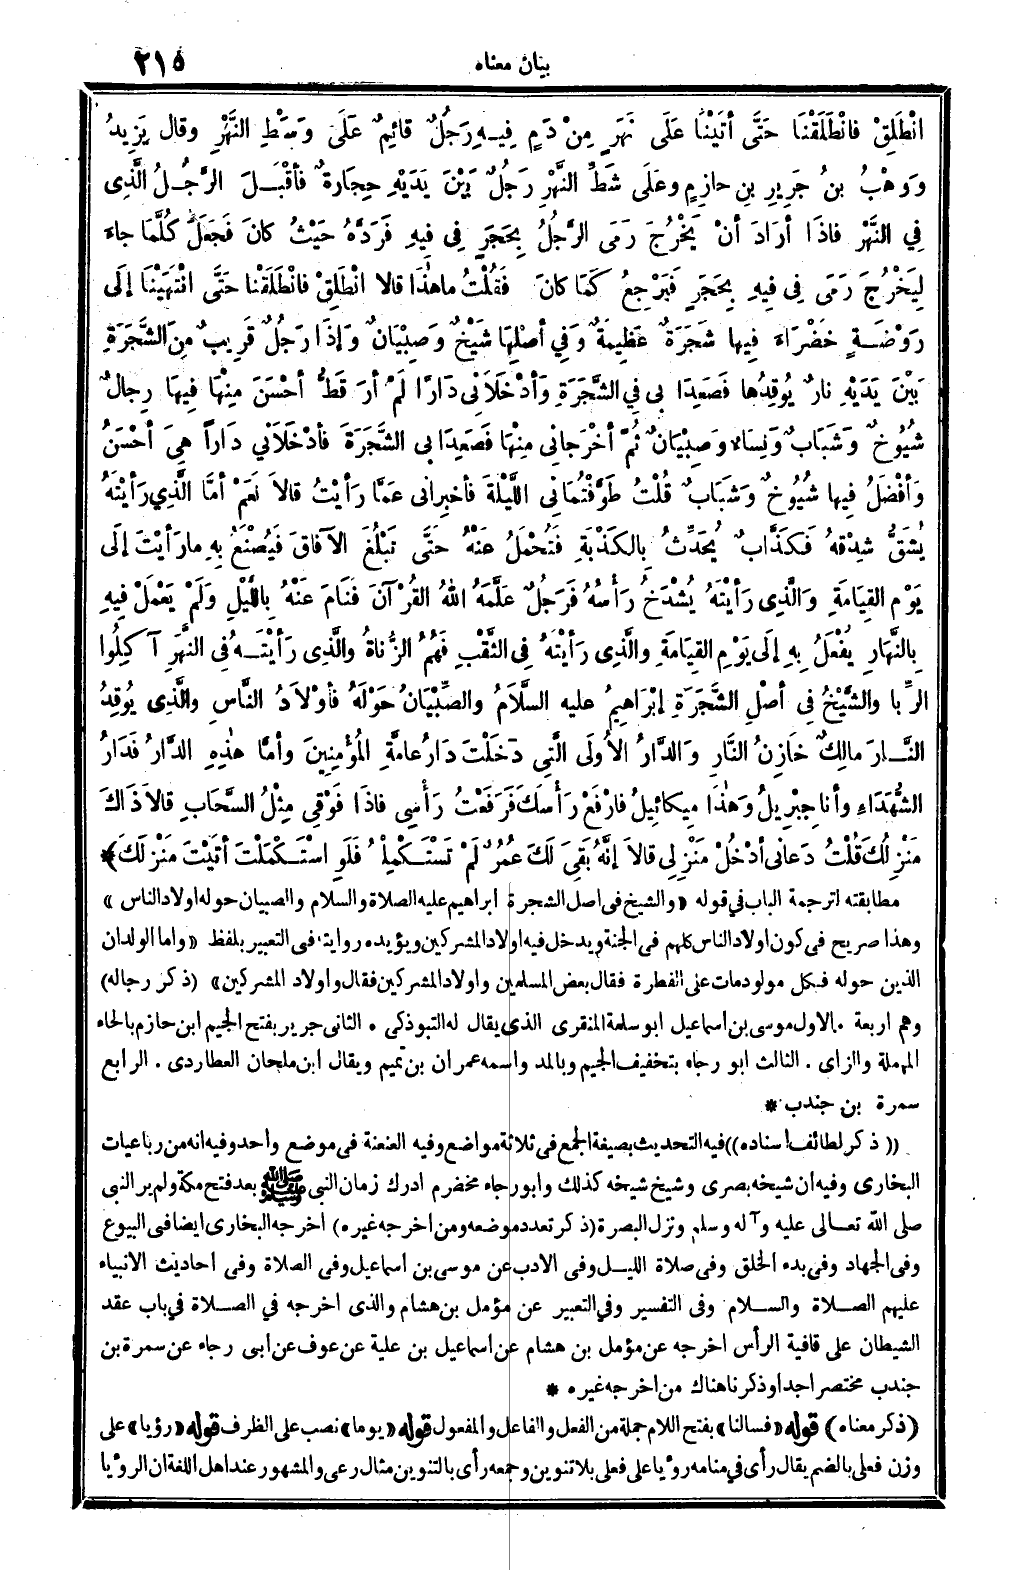 بيان معناه ٢١٥
انْطَلِقْ فانْطَلَقْنَا حَتَّى أتَيْنَا عَلَى نَهَرٍ مِنْ دَمٍ فِيهِ رَجُلٌ قائِمٌ عَلَى وَسَطِ النَّهَرِ وقال يَزِيدُ
وَوَهْبُ بنُ جَرِيرِ بنِ حازِمٍ وعَلَى شَطِّ النَّهَرِ رَجُلٌ بَيْنَ يَدَيْهِ حِجارَةٌ فأقْبَلَ الرَّجُلُ الَّذِي
فِي النَّهَرِ فاذَا أرَادَ أنْ يَخْرُجَ رَمَى الرَّجُلُ بِحَجَرٍ فِي فِيهِ فَرَدَّهُ حَيْثُ كانَ فَجَعَلَ كُلَّمَا جاءَ
لِيَخْرُجَ رَمَى فِي فِيهِ بِحَجَرٍ فَيَرْجِعُ كَمَا كانَ فَقُلْتُ ماهٰذَا قالا انْطَلِقْ فانْطَلَقْنا حَتَّى انْتَهَيْنَا إلَى
رَوْضَةٍ خَضْرَاءَ فِيها شَجَرَةٌ عَظِيمَةٌ وَفِي أصْلِهَا شَيْخٌ وَصِبْيَانٌ وَإذَا رَجُلٌ قَرِيبٌ مِنَ الشَّجَرَةِ
بَيْنَ يَدَيْهِ نارٌ يُوقِدُها فَصَعِدَا بِي فِي الشَّجَرَةِ وَأدْخَلَانِي دَارًا لَمْ أرَ قَطُّ أحْسَنَ مِنْهَا فِيهَا رِجالٌ
شُيُوخٌ وَشَبَابٌ وَنِساءٌ وَصِبْيَانٌ ثُمَّ أخْرَجانِي مِنْهَا فَصَعِدَا بِي الشَّجَرَةَ فأدْخَلَانِي دَاراً هِيَ أحْسَنُ
وَأفْضَلُ فِيها شُيُوخٌ وَشَبَابٌ قُلْتُ طَوَّفْتُمَانِي اللَّيْلَةَ فأخْبِرانِي عَمَّا رَأيْتُ قالاَ نَعَمْ أمَّا الَّذِي رَأيْتَهُ
يُشَقُّ شِدْقُهُ فَكَذَّابٌ يُحَدِّثُ بِالكَذْبَةِ فَتُحْمَلُ عَنْهُ حَتَّى تَبْلُغَ الآفاقَ فَيُصْنَعُ بِهِ مارَأيْتَ إلَى
يَوْمِ القِيَامَةِ وَالَّذِي رَأيْتَهُ يُشْدَخُ رَأْسُهُ فَرَجُلٌ عَلَّمَهُ اللهُ القُرْآنَ فَنَامَ عَنْهُ بِاللَّيْلِ وَلَمْ يَعْمَلْ فِيهِ
بِالنَّهَارِ يُفْعَلُ بِهِ إلَى يَوْمِ القِيَامَةِ والَّذِي رَأيْتَهُ فِي الثَّقْبِ فَهُمُ الزُّناةُ والَّذِي رَأيْتَهُ فِي النَّهَرِ آكِلُوا
الرِّبا والشَّيْخُ فِي أصْلِ الشَّجَرَةِ إبْرَاهِيمُ عليه السَّلَامُ والصِّبْيَانُ حَوْلَهُ فأوْلَادُ النَّاسِ والَّذِي يُوقِدُ
النَّارَ مالِكٌ خَازِنُ النَّارِ وَالدَّارُ الأُولَى الَّتِي دَخَلْتَ دَارُ عامَّةِ المُؤْمِنِينَ وأمَّا هٰذِهِ الدَّارُ فَدَارُ
الشُّهَدَاءِ وأنا جِبْرِيلُ وَهٰذَا مِيكائِيلُ فارْفَعْ رَأْسَكَ فَرَفَعْتُ رَأْسِي فاذَا فَوْقِي مِثْلُ السَّحَابِ قالاَ ذَاكَ
مَنْزِلُكَ قُلْتُ دَعانِي أدْخُلْ مَنْزِلِي قالاَ إنَّهُ بَقِيَ لَكَ عُمُرٌ لَمْ تَسْتَكْمِلْهُ فَلَوِ اسْتَكْمَلْتَ أتَيْتَ مَنْزِلَكَ﴾ *
مطابقته لترجمة الباب في قوله «والشيخ فى اصل الشجرة ابراهيم عليه الصلاة والسلام والصبيان حوله اولاد الناس»
وهذا صريح فى كون اولاد الناس كلهم فى الجنة ويدخل فيه اولاد المشركين ويؤيده رواية فى التعبير بلفظ «واما الولدان
الذين حوله فكل مولود مات على الفطرة فقال بعض المسلمين واولاد المشركين فقال واولاد المشركين» (ذكر رجاله)
وهم اربعة . الاول موسى بن اسماعيل ابو سلمة المنقرى الذى يقال له التبوذكى . الثانى جرير بفتح الجيم ابن حازم بالحاء
المهملة والزاى . الثالث ابو رجاء بتخفيف الجيم وبالمد واسمه عمران بن تميم ويقال ابن ملحان العطاردى . الرابع
سمرة بن جندب *
((ذكر لطائف اسناده)) فيه التحديث بصيغة الجمع فى ثلاثة مواضع وفيه العنعنة فى موضع واحد وفيه انه من رباعيات
البخارى وفيه ان شيخه بصرى وشيخ شيخه كذلك وابو رجاء مخضرم ادرك زمان النبى ﷺ بعد فتح مكة ولم ير النبى
صلى الله تعالى عليه وآله وسلم ونزل البصرة (ذكر تعدد موضعه ومن اخرجه غيره) اخرجه البخارى ايضا فى البيوع
وفى الجهاد وفى بدء الخلق وفى صلاة الليل وفى الادب عن موسى بن اسماعيل وفى الصلاة وفى احاديث الانبياء
عليهم الصلاة والسلام وفى التفسير وفي التعبير عن مؤمل بن هشام والذى اخرجه في الصلاة في باب عقد
الشيطان على قافية الرأس اخرجه عن مؤمل بن هشام عن اسماعيل بن علية عن عوف عن ابى رجاء عن سمرة بن
جندب مختصر اجدا وذكرنا هناك من اخرجه غيره *
(ذكر معناه) قوله «فسالنا» بفتح اللام جملة من الفعل والفاعل والمفعول قوله «يوما» نصب على الظرف قوله «رؤيا» على
وزن فعلى بالضم يقال رأى في منامه رؤيا على فعلى بلا تنوين وجمعه رأى بالتنوين مثال رعى والمشهور عند اهل اللغة ان الرؤيا